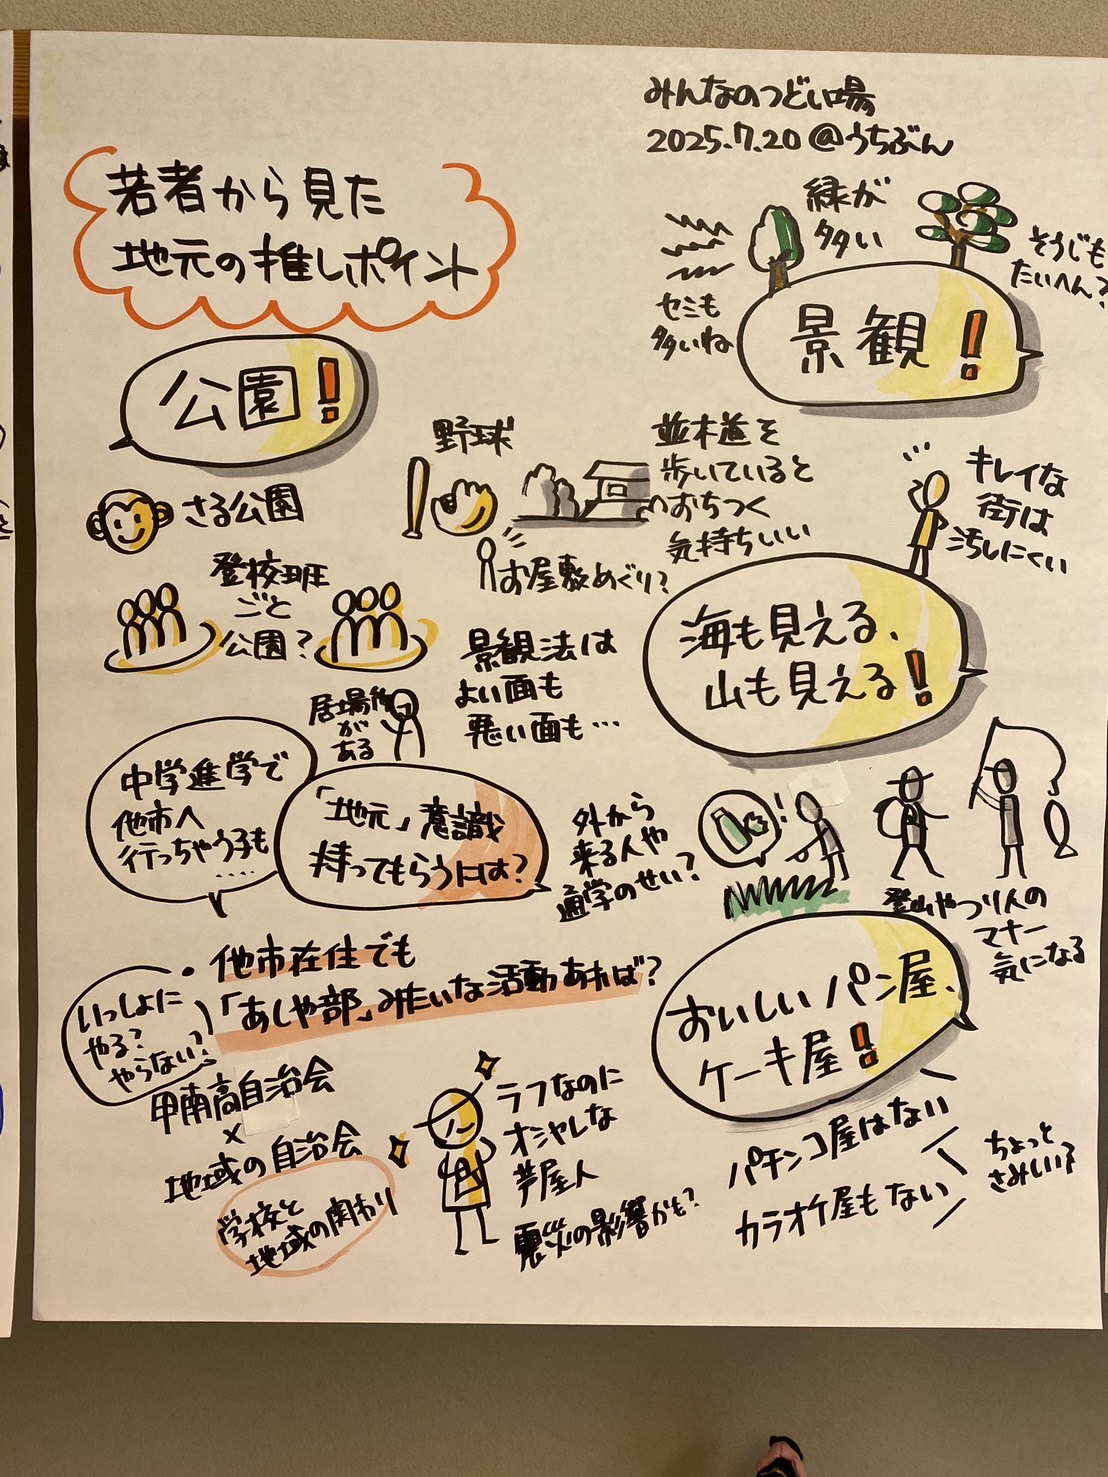 みんなのつどい場
2025.7.20 @うちぶん
若者から見た
地元の推しポイント
緑が
多い
そうじも
たいへん?
セミも
多いね
景観!
公園!
さる公園
野球
並木道を
歩いていると
おちつく
気持ちいい
キレイな
街は
汚しにくい
お屋敷めぐり?
登校班
ごと
公園?
景観法は
よい面も
悪い面も…
海も見える、
山も見える!
居場所
がある
中学進学で
他市へ
行っちゃう子も
……
「地元」意識
持ってもらうには?
外から
来る人や
通学のせい?
登山やつり人の
マナー
気になる
・他市在住でも
「あしや部」みたいな活動あれば?
いっしょに
やる?
やらない?
甲南高自治会
×
地域の自治会
学校と
地域の関わり
ラフなのに
オシャレな
芦屋人
震災の影響かも?
おいしいパン屋、
ケーキ屋!
パチンコ屋はない
カラオケ屋もない
ちょっと
さみしい?